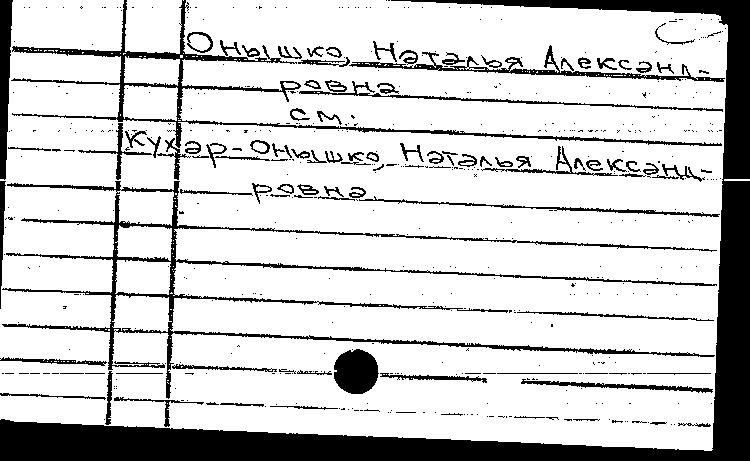 Онышко, Наталья Александ-
ровна
см.
Кухар-Онышко, Наталья Александ-
ровна.